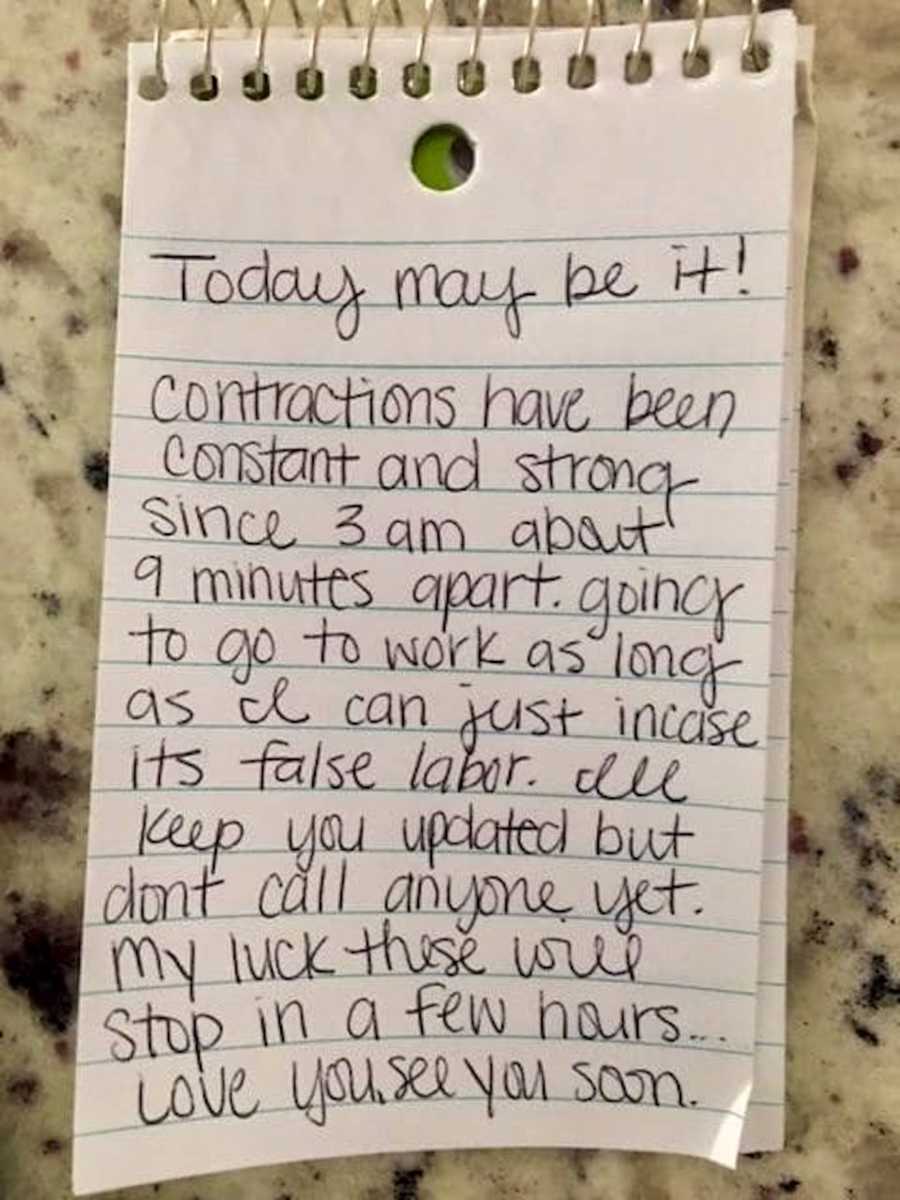 Today may be it!
contractions have been
constant and strong
since 3 am about
9 minutes apart. going
to go to work as long
as I can just incase
its false labor. Ill
keep you updated but
dont call anyone yet.
my luck these will
stop in a few hours...
Love you. see you soon.